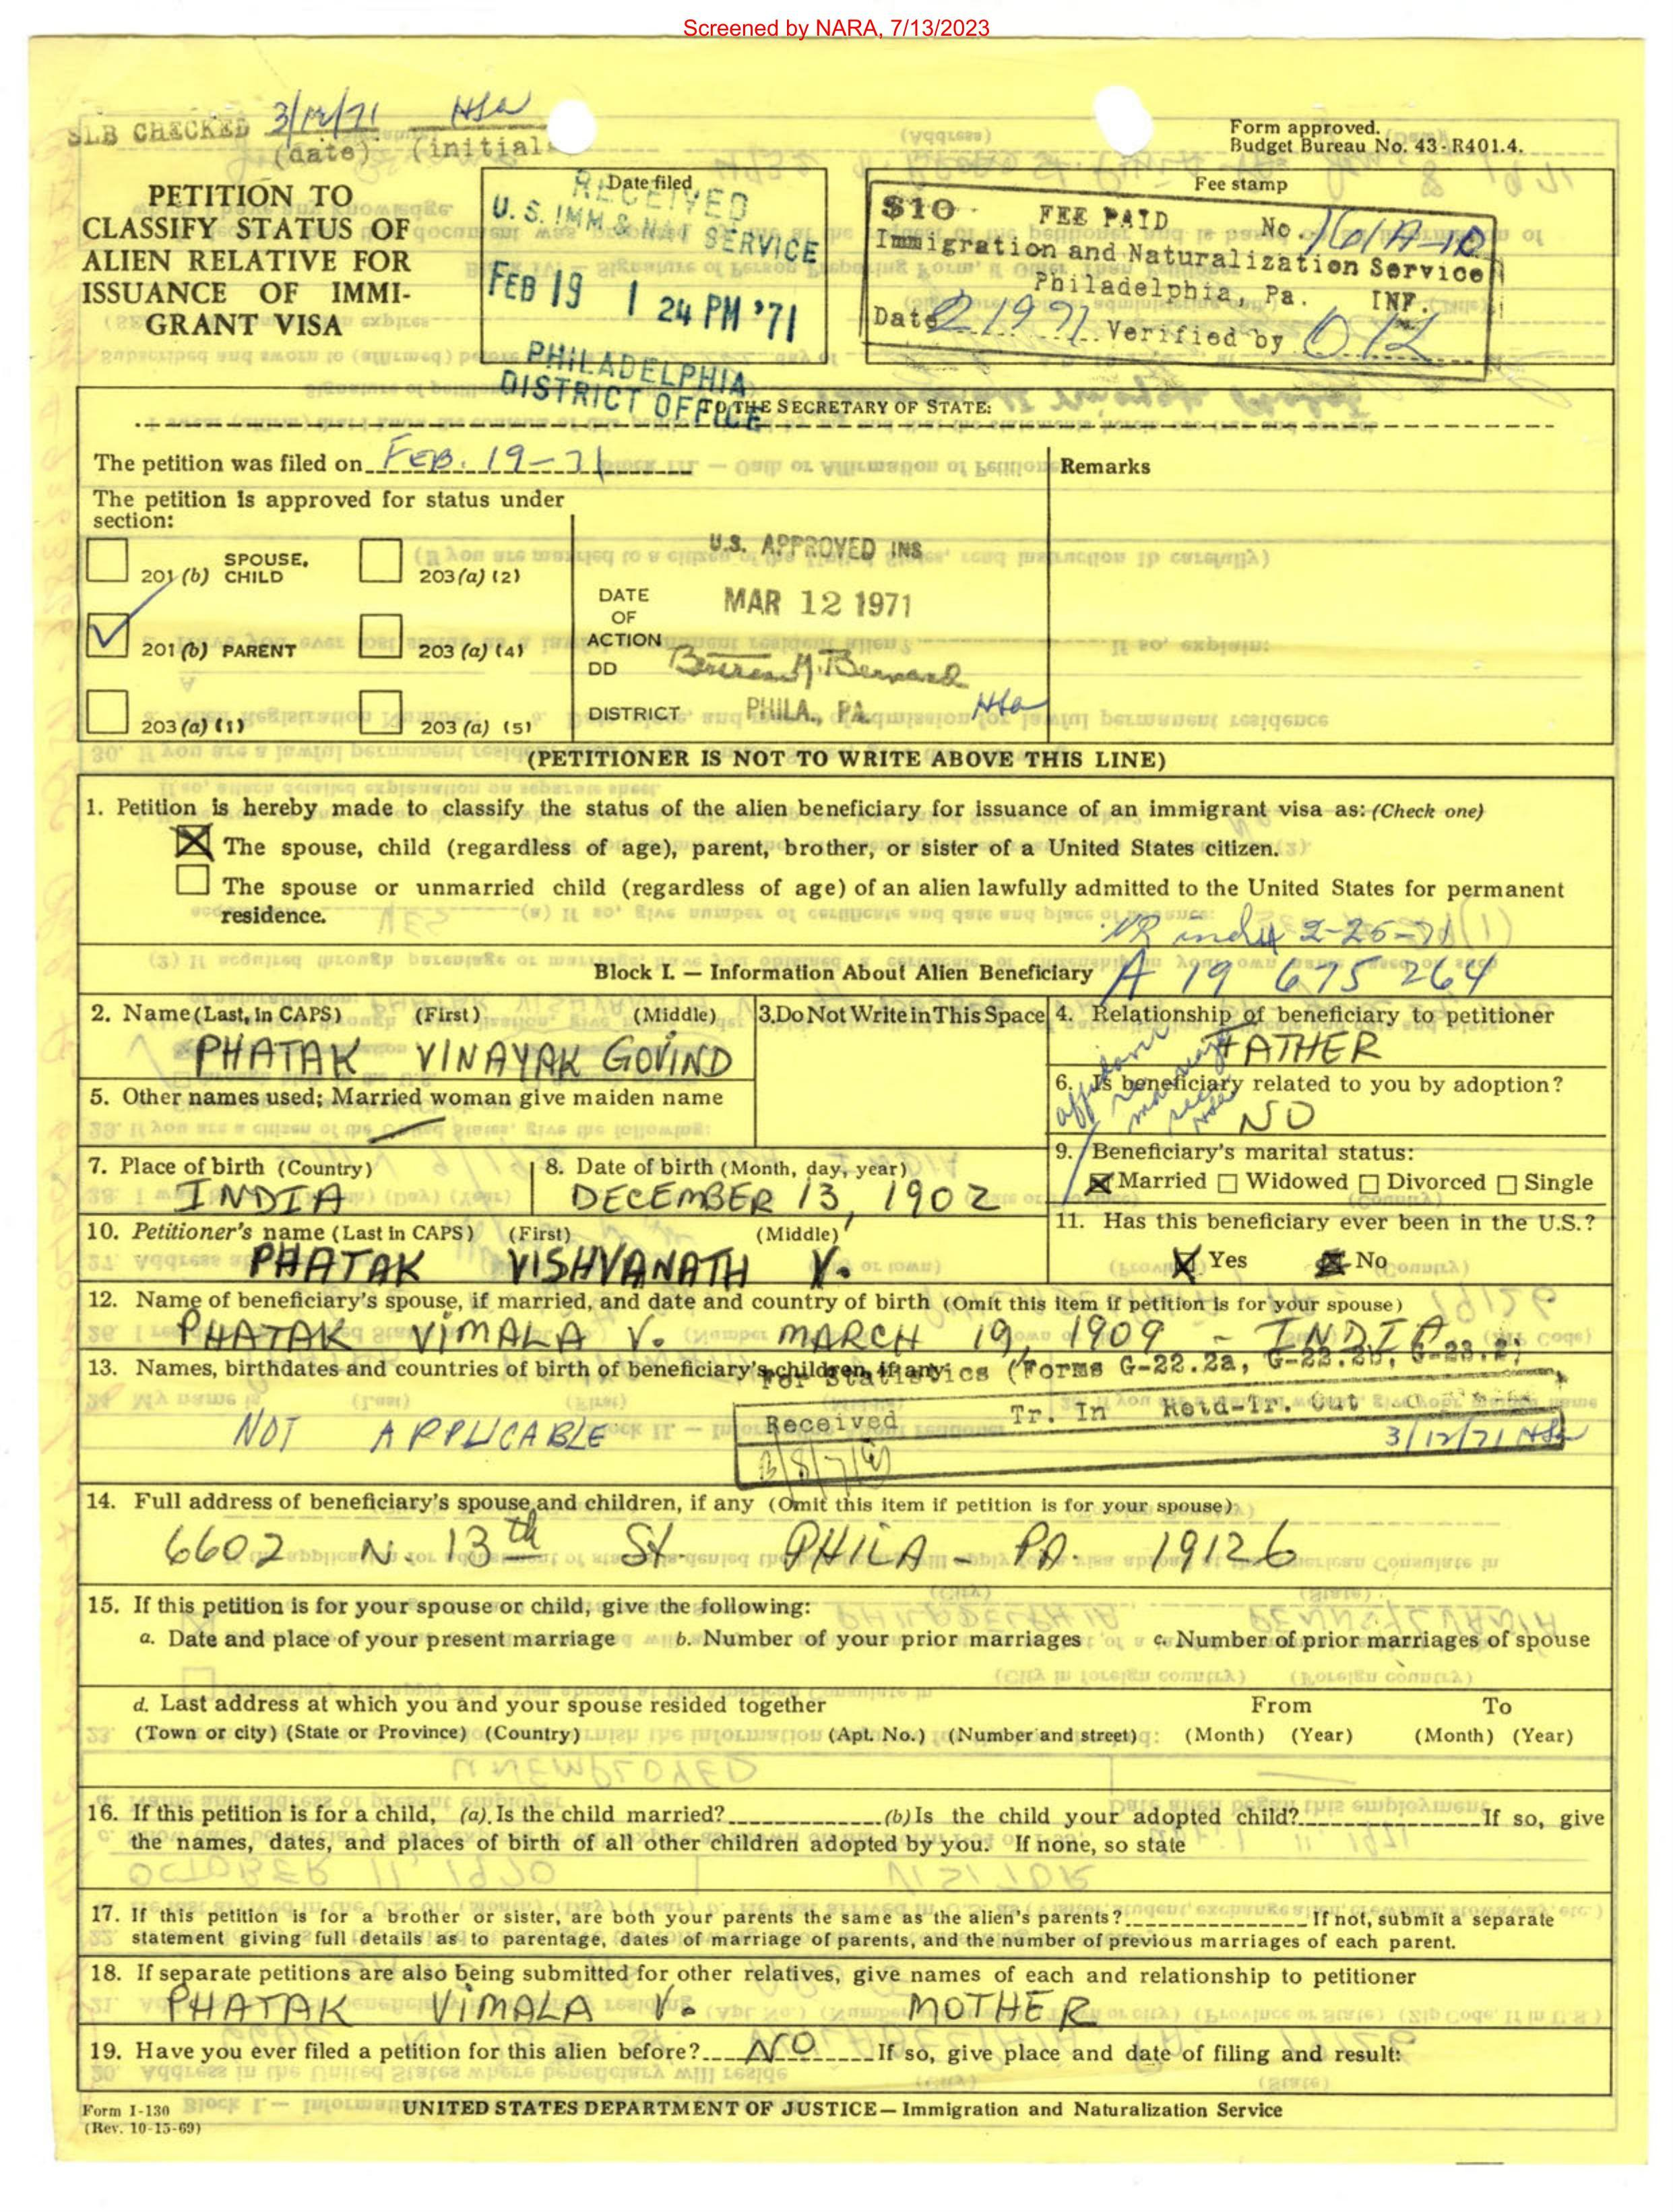 Screened by NARA, 7/13/2023
SLB CHECKED 3/12/71 HSa
(date) (initial
Form approved.
Budget Bureau No. 43-R401.4.
PETITION TO
CLASSIFY STATUS OF
ALIEN RELATIVE FOR
ISSUANCE OF IMMI-
GRANT VISA
Date filed
RECEIVED
U. S. IMM & NAT SERVICE
FEB 19 1 24 PM '71
PHILADELPHIA
DISTRICT OFFICE
Fee stamp
$10 FEE PAID No. 161A-10
Immigration and Naturalization Service
Philadelphia, Pa. INF.
Date 2 19 71 Verified by
TO THE SECRETARY OF STATE:
The petition was filed on FEB. 19-71
Remarks
The petition is approved for status under
section:
201 (b) SPOUSE, CHILD
203 (a) (2)
201 (b) PARENT
203 (a) (4)
203 (a) (1)
203 (a) (5)
U.S. APPROVED INS
DATE OF ACTION MAR 12 1971
DD Bertram M. Bernard
DISTRICT PHILA., PA. HSa
(PETITIONER IS NOT TO WRITE ABOVE THIS LINE)
1. Petition is hereby made to classify the status of the alien beneficiary for issuance of an immigrant visa as: (Check one)
The spouse, child (regardless of age), parent, brother, or sister of a United States citizen.
The spouse or unmarried child (regardless of age) of an alien lawfully admitted to the United States for permanent
residence.
NR index 2-25-71
Block I. — Information About Alien Beneficiary A 19 675 264
2. Name (Last, in CAPS) (First) (Middle)
PHATAK VINAYAK GOVIND
3. Do Not Write in This Space
4. Relationship of beneficiary to petitioner
FATHER
5. Other names used; Married woman give maiden name
6. Is beneficiary related to you by adoption?
NO
7. Place of birth (Country)
INDIA
8. Date of birth (Month, day, year)
DECEMBER 13, 1902
9. Beneficiary's marital status:
Married Widowed Divorced Single
10. Petitioner's name (Last in CAPS) (First) (Middle)
PHATAK VISHVANATH V.
11. Has this beneficiary ever been in the U.S.?
Yes No
12. Name of beneficiary's spouse, if married, and date and country of birth (Omit this item if petition is for your spouse)
PHATAK VIMALA V. MARCH 19, 1909 - INDIA
13. Names, birthdates and countries of birth of beneficiary's children, if any
NOT APPLICABLE
For Statistics (Forms G-22.2a, G-22.2b, G-23.2;
Received Tr. In Retd-Tr. Out
3/12/71 HSa
14. Full address of beneficiary's spouse and children, if any (Omit this item if petition is for your spouse)
6602 N. 13th St. PHILA - PA. 19126
15. If this petition is for your spouse or child, give the following:
a. Date and place of your present marriage b. Number of your prior marriages c. Number of prior marriages of spouse
d. Last address at which you and your spouse resided together From To
(Town or city) (State or Province) (Country) (Apt. No.) (Number and street) (Month) (Year) (Month) (Year)
16. If this petition is for a child, (a). Is the child married? (b) Is the child your adopted child? If so, give
the names, dates, and places of birth of all other children adopted by you. If none, so state
17. If this petition is for a brother or sister, are both your parents the same as the alien's parents? If not, submit a separate
statement giving full details as to parentage, dates of marriage of parents, and the number of previous marriages of each parent.
18. If separate petitions are also being submitted for other relatives, give names of each and relationship to petitioner
PHATAK VIMALA V. MOTHER
19. Have you ever filed a petition for this alien before? NO If so, give place and date of filing and result:
Form I-130
(Rev. 10-15-69)
UNITED STATES DEPARTMENT OF JUSTICE — Immigration and Naturalization Service